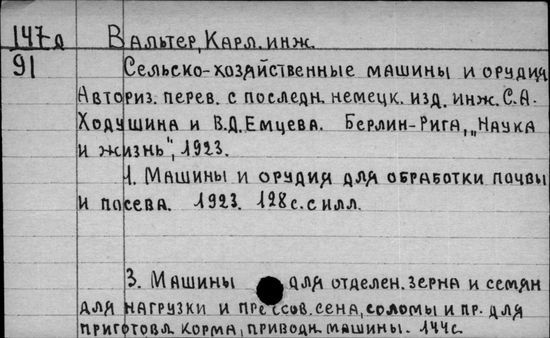 147д Вальтер, Карл. инж.
91 Сельско-хозяйственные машины и орудия
Авториз. перев. с последн. немецк. изд. инж. С.А.
Ходушина и В.Д. Емцева. Берлин-Рига, „Наука
и жизнь", 1923.
1. Машины и орудия для обработки почвы
и посева. 1923. 128 с. с илл.
3. Машины для отделен. зерна и семян
для нагрузки и прессов. сена, соломы и пр. для
приготовл. корма, приводн. машины. 144с.